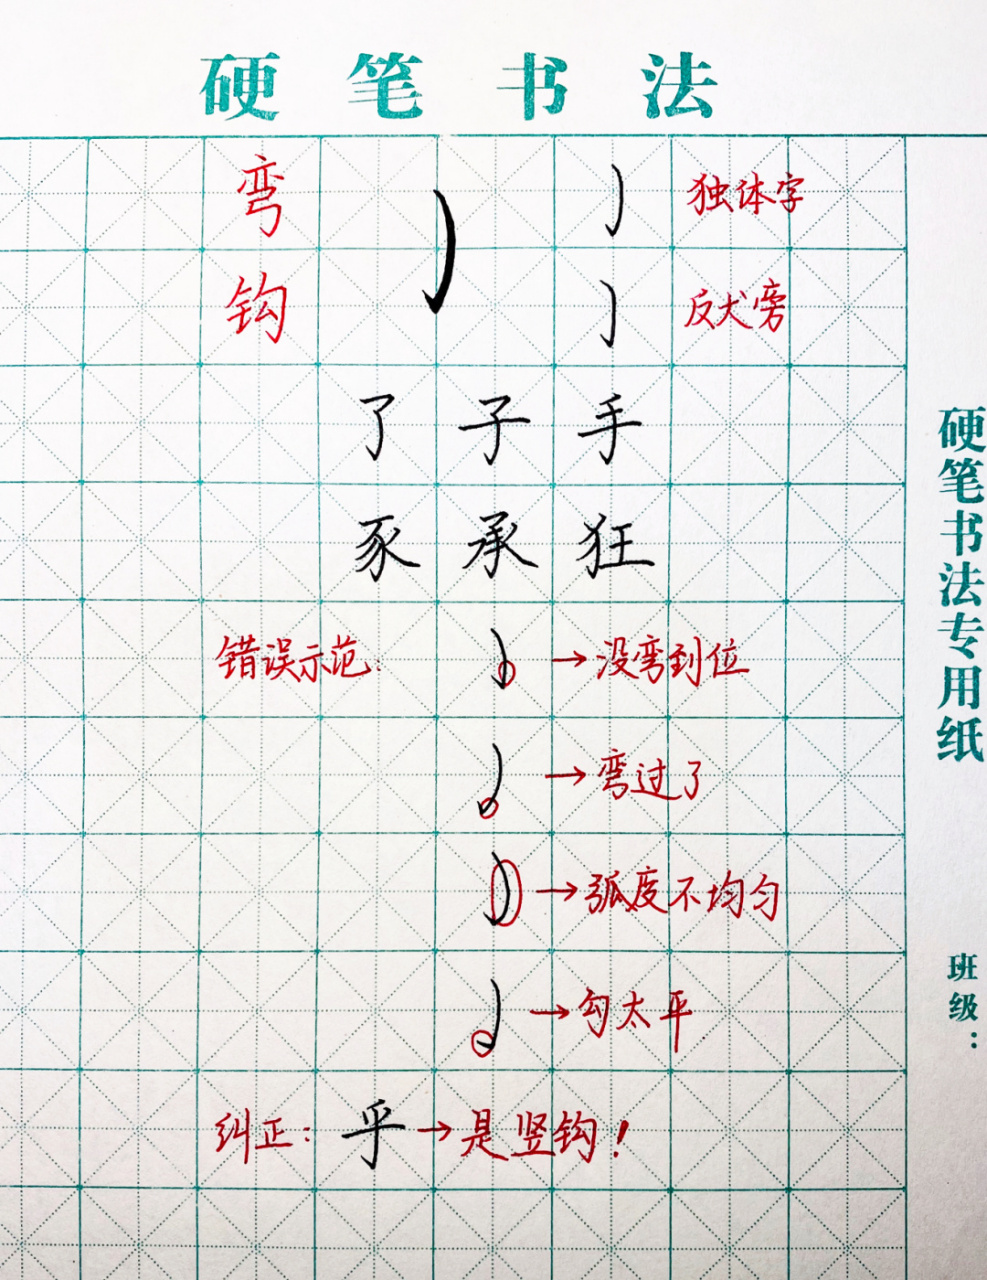 硬笔书法
弯钩
独体字
反犬旁
了子手
豖承狂
错误示范:
→没弯到位
→弯过了
→弧度不均匀
→勾太平
纠正:乎→是竖钩!
硬笔书法专用纸
班级: